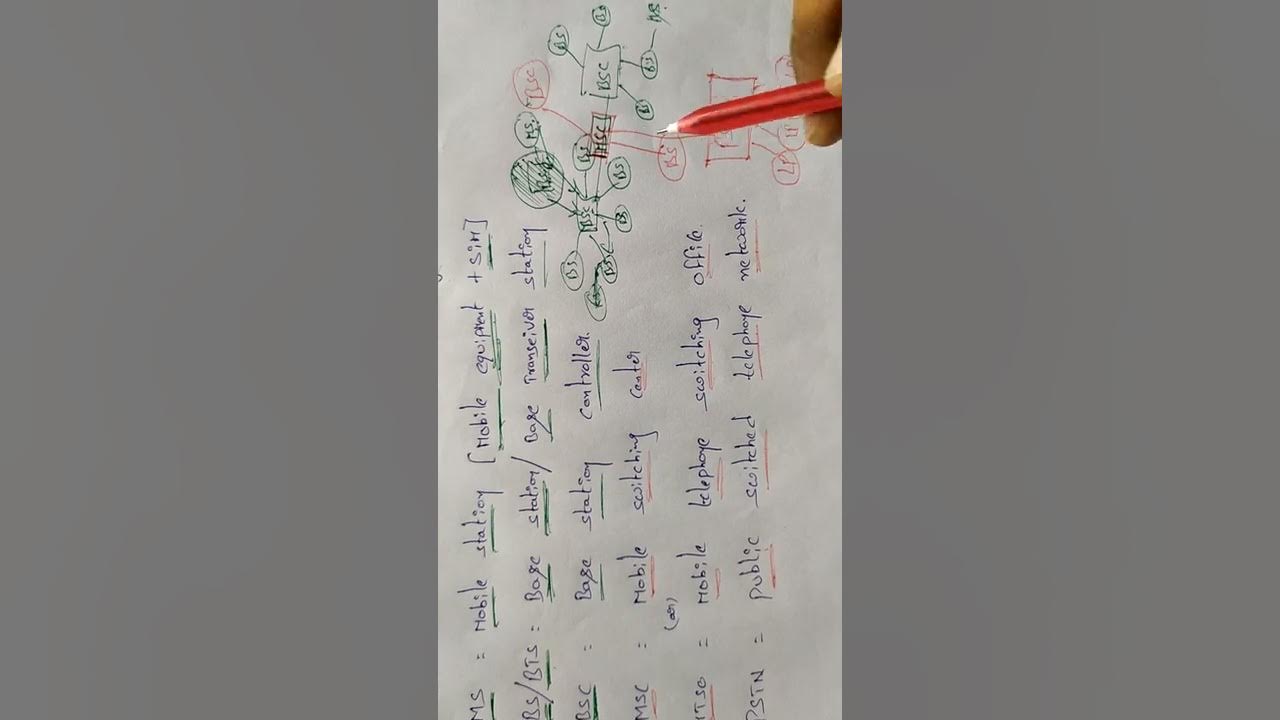 MS = Mobile station [Mobile equipment + SiM]
BS/BTS = Base station/ Base Transeiver station
BSC = Base station controller.
MSC = Mobile switching center
(or)
MTSO = Mobile telephone switching office.
PSTN = public switched telephone network.
BSC
MS
BS
BS
BS
BSC
BS
BS
BS
BSC
MSC
BS
BS
BSC
BS
BS
MS
BS
LP